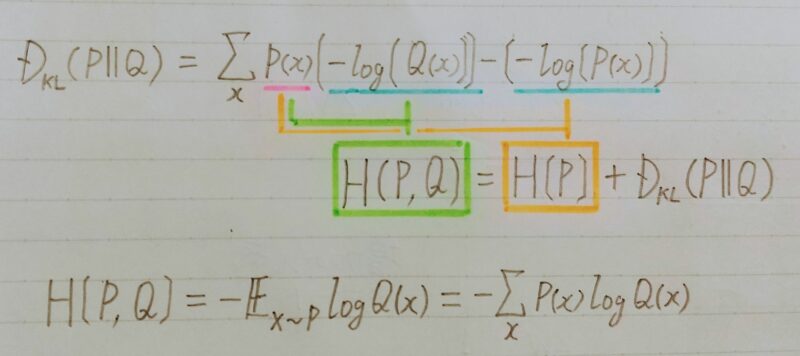 D_KL(P||Q) = ∑_x P(x)(-log(Q(x)))-(-log(P(x)))
H(P,Q) = H(P) + D_KL(P||Q)
H(P,Q) = -𝔼_{x~P} log Q(x) = -∑_x P(x) log Q(x)